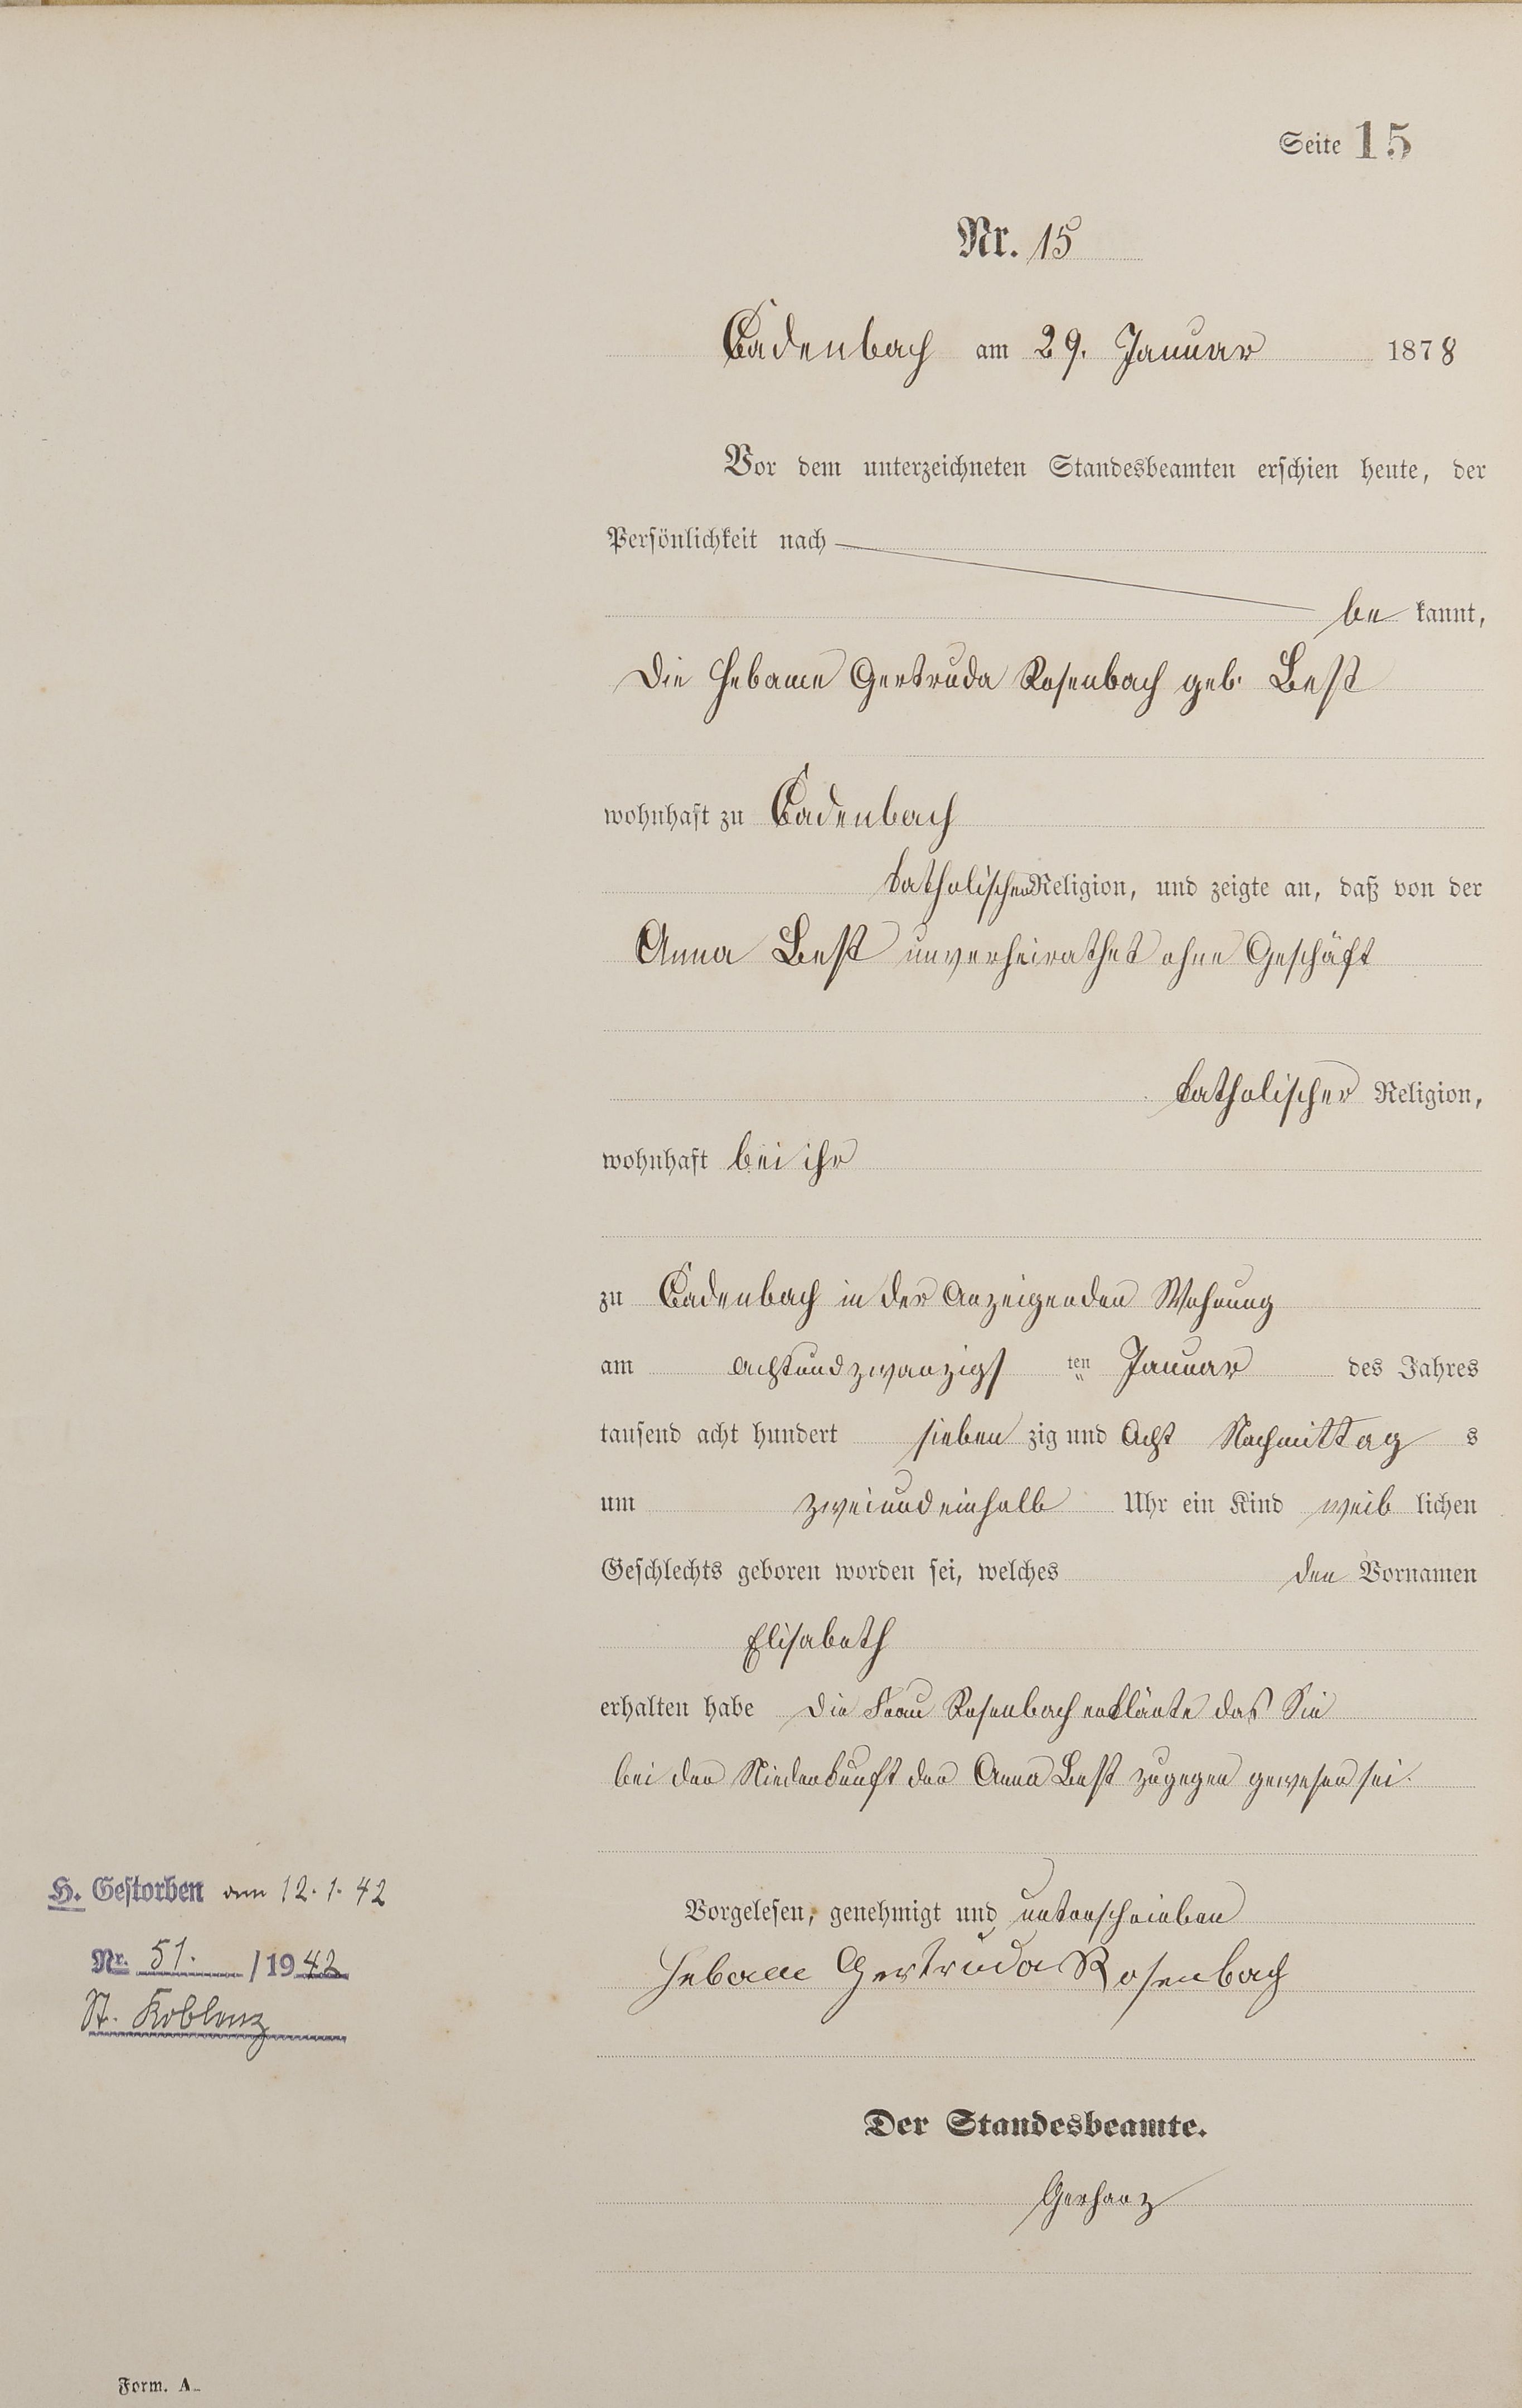 Seite 15
Nr. 15
Cadenbach am 29. Januar 1878
Vor dem unterzeichneten Standesbeamten erschien heute, der
Persönlichkeit nach
be kannt,
Die Hebame Gertruda Rosenbach geb. Best
wohnhaft zu Cadenbach
katholischer Religion, und zeigte an, daß von der
Anna Best unverheirathet ohne Geschäft
katholischer Religion,
wohnhaft bei ihr
zu Cadenbach in der Anzeigenden Wohnung
am achtundzwanzigs ten Januar des Jahres
tausend acht hundert sieben zig und Acht Nachmittag s
um zweiundeinhalb Uhr ein Kind weib lichen
Geschlechts geboren worden sei, welches den Vornamen
Elisabeth
erhalten habe Die Frau Rosenbach erklärte das Sie
bei der Niederkunft der Anna Best zugegen gewesen sei.
Vorgelesen, genehmigt und unterschrieben
Hebame Gertruda Rosenbach
Der Standesbeamte.
Gerharz
H. Gestorben am 12.1.42
Nr. 51. /1942
St. Koblenz
Form. A.